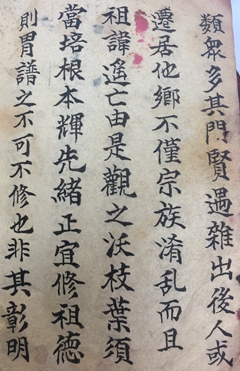 類衆多其門賢遇雜出後人或
遷居他鄉不僅宗族淆乱而且
祖諱遙亡由是觀之沃枝葉須
當培根本輝先緒正宜修祖德
則胃譜之不可不修也非其彰明